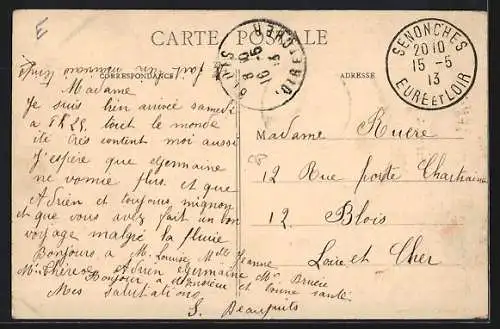 E
CARTE POSTALE
CORRESPONDANCE
ADRESSE
SENONCHES
20 10
15 - 5
13
EURE ET LOIR
BLOIS
LOIR-ET-CHER
Madame
Je suis bien arrivée samedi
a 8h 25. tout le monde
été très content moi aussi
J'espère que Germaine
ne vomie plus et que
Adrien et toujours mignon
et que vous avez fait un bon
voyage malgré la pluie
Bonjours a M. Louise, Mlle Jeanne
Mme Thérèse Adrien Germaine Mr Bruère
Bonjour a Monsieur et bonne santé
Mes salutations
S. Beaupuits
Madame Ruere
12 Rue porte Chartraine
12 Blois
Loire et Cher